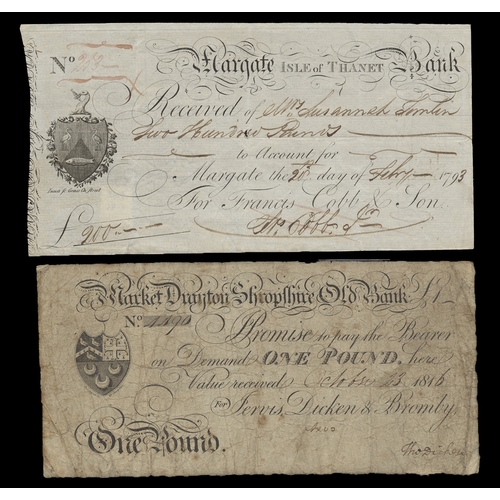 Margate ISLE of THANET Bank
No 212
Received of Mrs Susannah Tomlin
Two Hundred Pounds
to Account for
Margate the 20th day of Feby 1793
For Francis Cobb & Son.
£ 200
Fs Cobb Jr
Market Drayton Shropshire Old Bank
No 1190
Promise to pay the Bearer
on Demand ONE POUND, here
Value received October 23 1816
For Jervis, Dicken & Bromby,
One Pound.
Tho Dicken